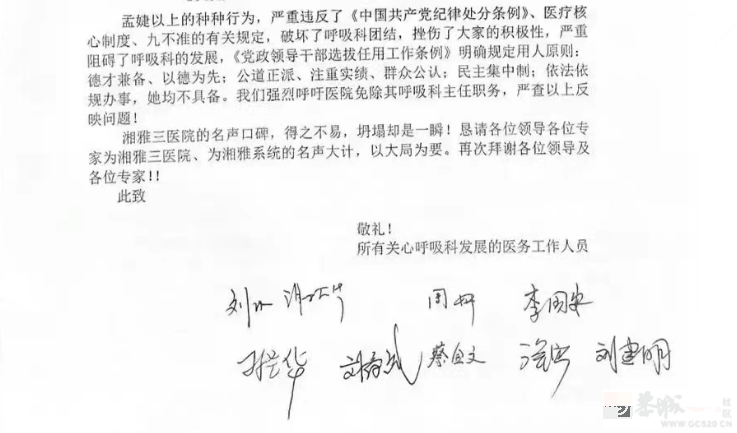 孟婕以上的种种行为，严重违反了《中国共产党纪律处分条例》、医疗核
心制度、九不准的有关规定，破坏了呼吸科团结，挫伤了大家的积极性，严重
阻碍了呼吸科的发展，《党政领导干部选拔任用工作条例》明确规定用人原则：
德才兼备、以德为先；公道正派、注重实绩、群众公认；民主集中制；依法依
规办事，她均不具备。我们强烈呼吁医院免除其呼吸科主任职务，严查以上反
映问题！
湘雅三医院的名声口碑，得之不易，坍塌却是一瞬！恳请各位领导各位专
家为湘雅三医院、为湘雅系统的名声大计，以大局为要。再次拜谢各位领导及
各位专家！！
此致
敬礼！
所有关心呼吸科发展的医务工作人员
李国安
刘建明
恭城
社区
WWW.GC520.CN